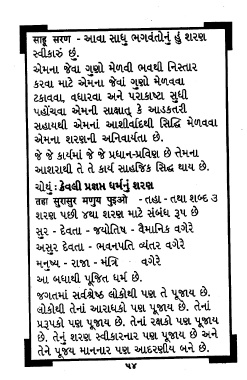 સાહૂ સરણ - આવા સાધુ ભગવંતોનું હું શરણ
સ્વીકારું છું.
એમના જેવા ગુણો મેળવી ભવથી નિસ્તાર
કરવા માટે એમના જેવાં ગુણો મેળવવા
ટકાવવા, વધારવા અને પરાકાષ્ટા સુધી
પહોંચવા એમની સાક્ષાત્ કે આડકતરી
સહાયથી એમનાં આશીર્વાદથી સિદ્ધિ મેળવવા
એમના શરણની અનિવાર્યતા છે.
જે જે કાર્યમાં જે જે પ્રધાન-પ્રવિણ છે તેમના
આશરાથી તે તે કાર્ય સાહજિક સિદ્ધ થાય છે.
ચોથું : કેવલી પ્રજ્ઞપ્ત ધર્મનું શરણ
તહા સુરાસુર મણુય પુઇઓ - તહા - તથા શબ્દ ૩
શરણ પછી ૪થા શરણ માટે સંબંધ રૂપ છે
સુર - દેવતા - જ્યોતિષ - વૈમાનિક વગેરે
અસુર દેવતા - ભવનપતિ વ્યંતર વગેરે
મનુષ્ય - રાજા - મંત્રિ વગેરે
આ બધાથી પૂજિત ધર્મ છે.
જગતમાં સર્વશ્રેષ્ઠ લોકોથી પણ તે પૂજાય છે.
લોકોથી તેનાં આરાધકો પણ પૂજાય છે. તેનાં
પ્રરૂપકો પણ પૂજાય છે. તેનાં રક્ષકો પણ પૂજાય
છે. તેનું શરણ સ્વીકારનાર પણ પૂજાય છે અને
તેને પૂજ્ય માનનાર પણ આદરણીય બને છે.
૫૪